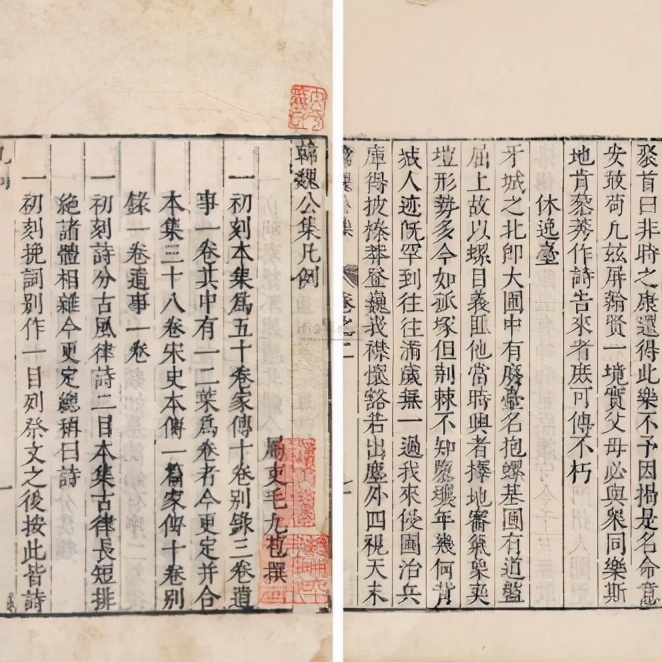 韓魏公集凡例
屬吏毛九苞撰
一初刻本集爲五十卷家傳十卷别錄三卷遺
事一卷其中有一二葉爲卷者今更定并合
本集三十八卷宋史本傳一篇家傳十卷别
錄一卷遺事一卷
一初刻詩分古風律詩二目本集古律長短排
絶諸體相雜今更定總稱曰詩
一初刻挽詞别作一目列祭文之後按此皆詩
聚首曰非時之康還得此樂不予因揚是名命意
安敢荷凢玆屏翰賢一境寳父母必與衆同樂斯
地肯蓁莠作詩告來者庶可傳不朽
休逸臺
牙城之北卽大圃中有廢臺名抱螺基圃有道盤
屈上故以螺目義匪他當時興者擇地審氣象爽
塏形勢多今如孤塚但荆棘不知隳壞年幾何背
城人迹旣罕到往往歲無一過我來優圖治兵
庫得披榛莽登巍峩襟懷豁若出塵外四視天末
韓魏公集 卷之二